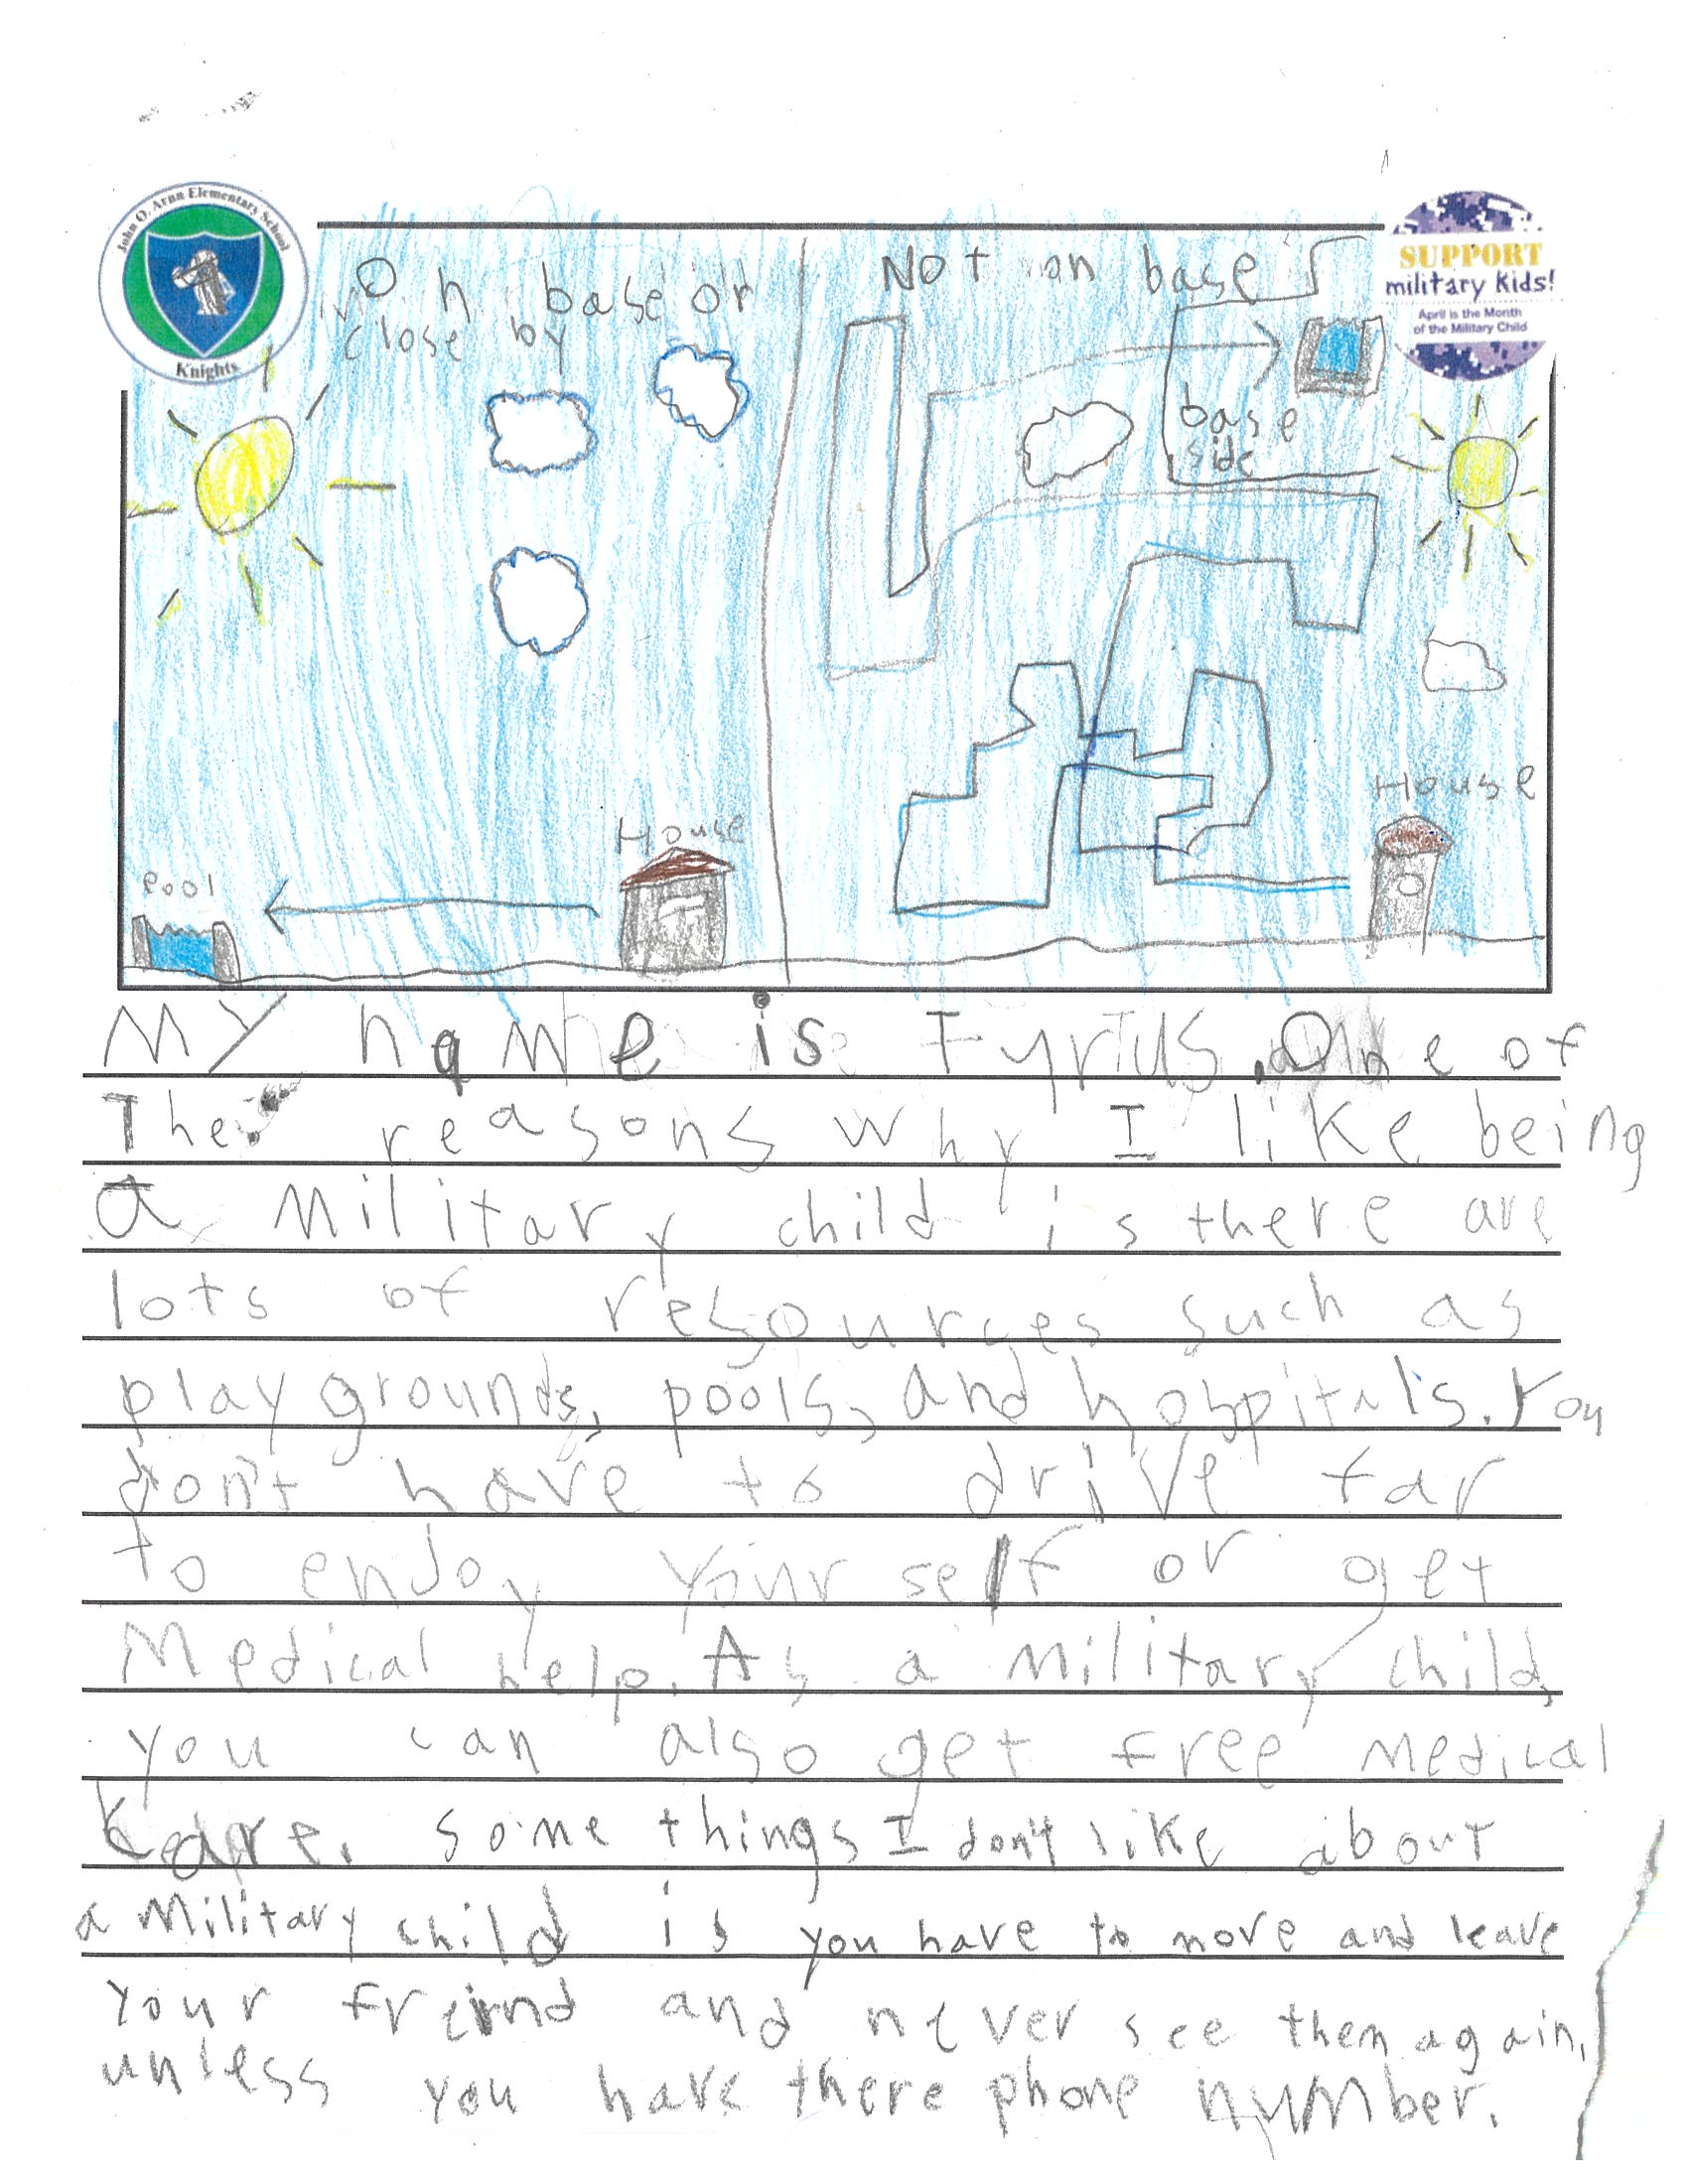 John O. Arnn Elementary School
Knights
SUPPORT
military kids!
April is the Month
of the Military Child
On base or
close by
Not on base
base
side
House
Pool
House
My name is Tyrius. One of
The reasons why I like being
a military child is there are
lots of resources such as
playgrounds, pools, and hospitals. You
don't have to drive far
to enjoy your self or get
Medical help. As a military child,
you can also get free medical
care. Some things I don't like about
a military child is you have to move and leave
your freind and never see them again,
unless you have there phone number.